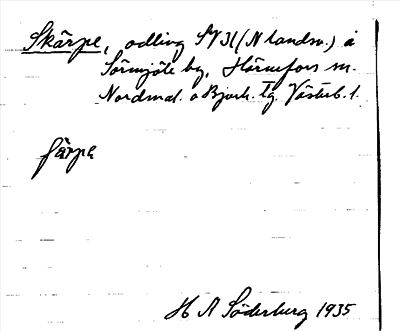 Skärpe, odling SV 31 (N landsv.) å
Sörmjöle by, Hörnefors sn.
Nordmal. o Bjurh. tg. Västerb. l.
färpe
H A Söderberg 1935